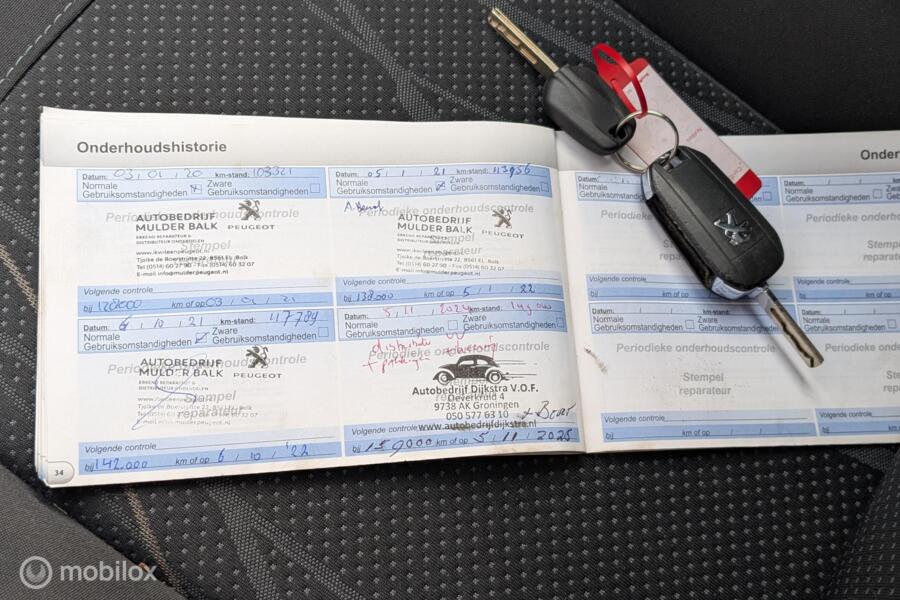 Onderhoudshistorie
Datum: 03 / 01 / 20 km-stand: 108321
Normale Gebruiksomstandigheden
Zware Gebruiksomstandigheden
Periodieke onderhoudscontrole
AUTOBEDRIJF
MULDER BALK
PEUGEOT
ERKEND REPARATEUR &
DISTRIBUTEUR ONDERDELEN
Stempel
www.ikwileenpeugeot.nl
Tjalke de Boerstrjitte 22, 8561 EL Balk
Tel (0514) 60 27 90 - Fax (0514) 60 32 07
E-mail info@mulderpeugeot.nl
Volgende controle
bij 128000 km of op 03 / 01 / 21
Datum: 05 / 1 / 21 km-stand:
Normale Gebruiksomstandigheden
Zware Gebruiksomstandigheden
Periodieke onderhoudscontrole
AUTOBEDRIJF
MULDER BALK
PEUGEOT
ERKEND REPARATEUR &
DISTRIBUTEUR ONDERDELEN
Stempel
www.ikwileenpeugeot.nl
Tjalke de Boerstrjitte 22, 8561 EL Balk
Tel (0514) 60 27 90 - Fax (0514) 60 32 07
E-mail info@mulderpeugeot.nl
Volgende controle
bij 138.000 km of op 5 / 1 / 22
Datum: 6 / 10 / 21 km-stand: 117789
Normale Gebruiksomstandigheden
Zware Gebruiksomstandigheden
Periodieke onderhoudscontrole
AUTOBEDRIJF
MULDER BALK
PEUGEOT
Stempel
reparateur
Volgende controle
bij 142.000 km of op 6 / 10 / '22
Datum: 5 / 11 / 2024 km-stand: 149000
Normale Gebruiksomstandigheden
Zware Gebruiksomstandigheden
Periodieke onderhoudscontrole
Autobedrijf Dijkstra V.O.F.
Oeverkruid 4
9738 AK Groningen
050 577 63 10
www.autobedrijfdijkstra.nl
Volgende controle
bij 159000 km of op 5 / 11 / 2025
34
Onder
Datum: / /
Normale Gebruiksomstandigheden
Periodieke
Stempel
reparateur
Volgende controle
bij km of op / /
Datum: / / km-stand:
Normale Gebruiksomstandigheden
Periodieke onderhoudscontrole
Stempel
reparateur
Volgende controle
bij km of op
Datum: / / km-stand:
Normale Gebruiksomstandigheden
Zware Gebruiksomstandigheden
Periodieke onderhoudscontrole
Stempel
reparateur
Volgende controle
bij km of op / /
Datum: / / km-stand:
Normale Gebruiksomstandigheden
Periodieke onderhoudscontrole
Stempel
reparateur
Volgende controle
bij km of op
mobilox